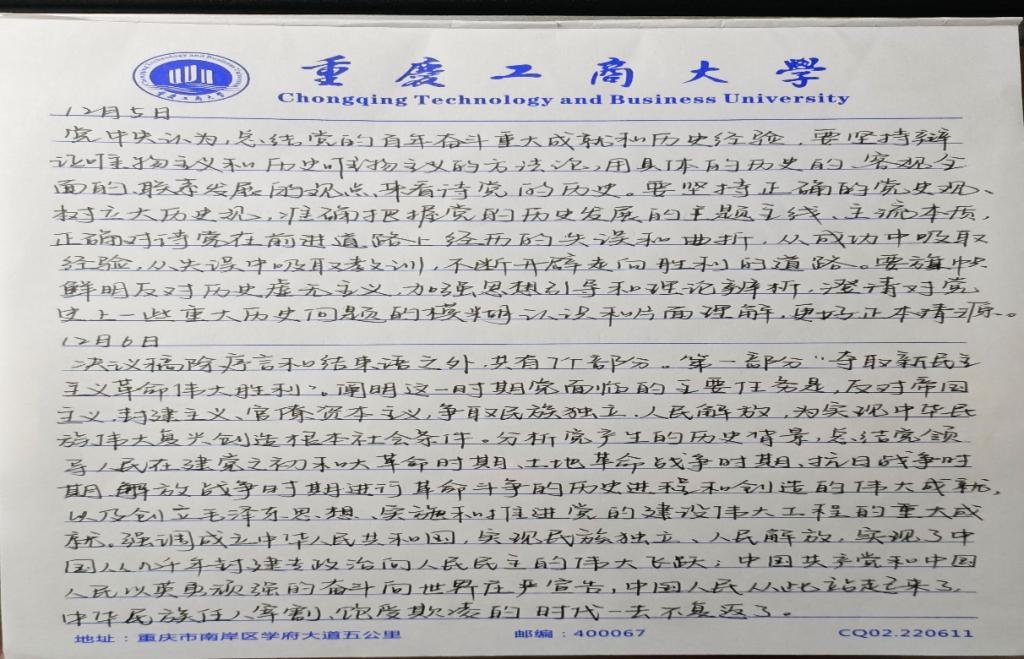 重庆工商大学
Chongqing Technology and Business University
12月5日
党中央认为,总结党的百年奋斗重大成就和历史经验,要坚持辩
证唯物主义和历史唯物主义的方法论,用具体的历史的、客观全
面的、联系发展的观点来看待党的历史。要坚持正确的党史观、
树立大历史观,准确把握党的历史发展的主题主线、主流本质,
正确对待党在前进道路上经历的失误和曲折,从成功中吸取
经验,从失误中吸取教训,不断开辟走向胜利的道路。要旗帜
鲜明反对历史虚无主义,加强思想引导和理论辨析,澄清对党
史上一些重大历史问题的模糊认识和片面理解,更好正本清源。
12月6日
决议稿除序言和结束语之外,共有7个部分。第一部分“夺取新民主
主义革命伟大胜利”。阐明这一时期党面临的主要任务是,反对帝国
主义、封建主义、官僚资本主义,争取民族独立、人民解放,为实现中华民
族伟大复兴创造根本社会条件。分析党产生的历史背景,总结党领
导人民在建党之初和大革命时期、土地革命战争时期、抗日战争时
期、解放战争时期进行革命斗争的历史进程和创造的伟大成就,
以及创立毛泽东思想、实施和推进党的建设伟大工程的重大成
就。强调成立中华人民共和国,实现民族独立、人民解放,实现了中
国从几千年封建专政治向人民民主的伟大飞跃;中国共产党和中国
人民以英勇顽强的奋斗向世界庄严宣告,中国人民从此站起来了,
中华民族任人宰割、饱受欺凌的时代一去不复返了。
地址:重庆市南岸区学府大道五公里
邮编:400067
CQ02.220611